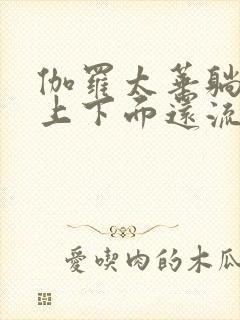 伽羅太華躺
上下而還流
愛喫肉的木瓜